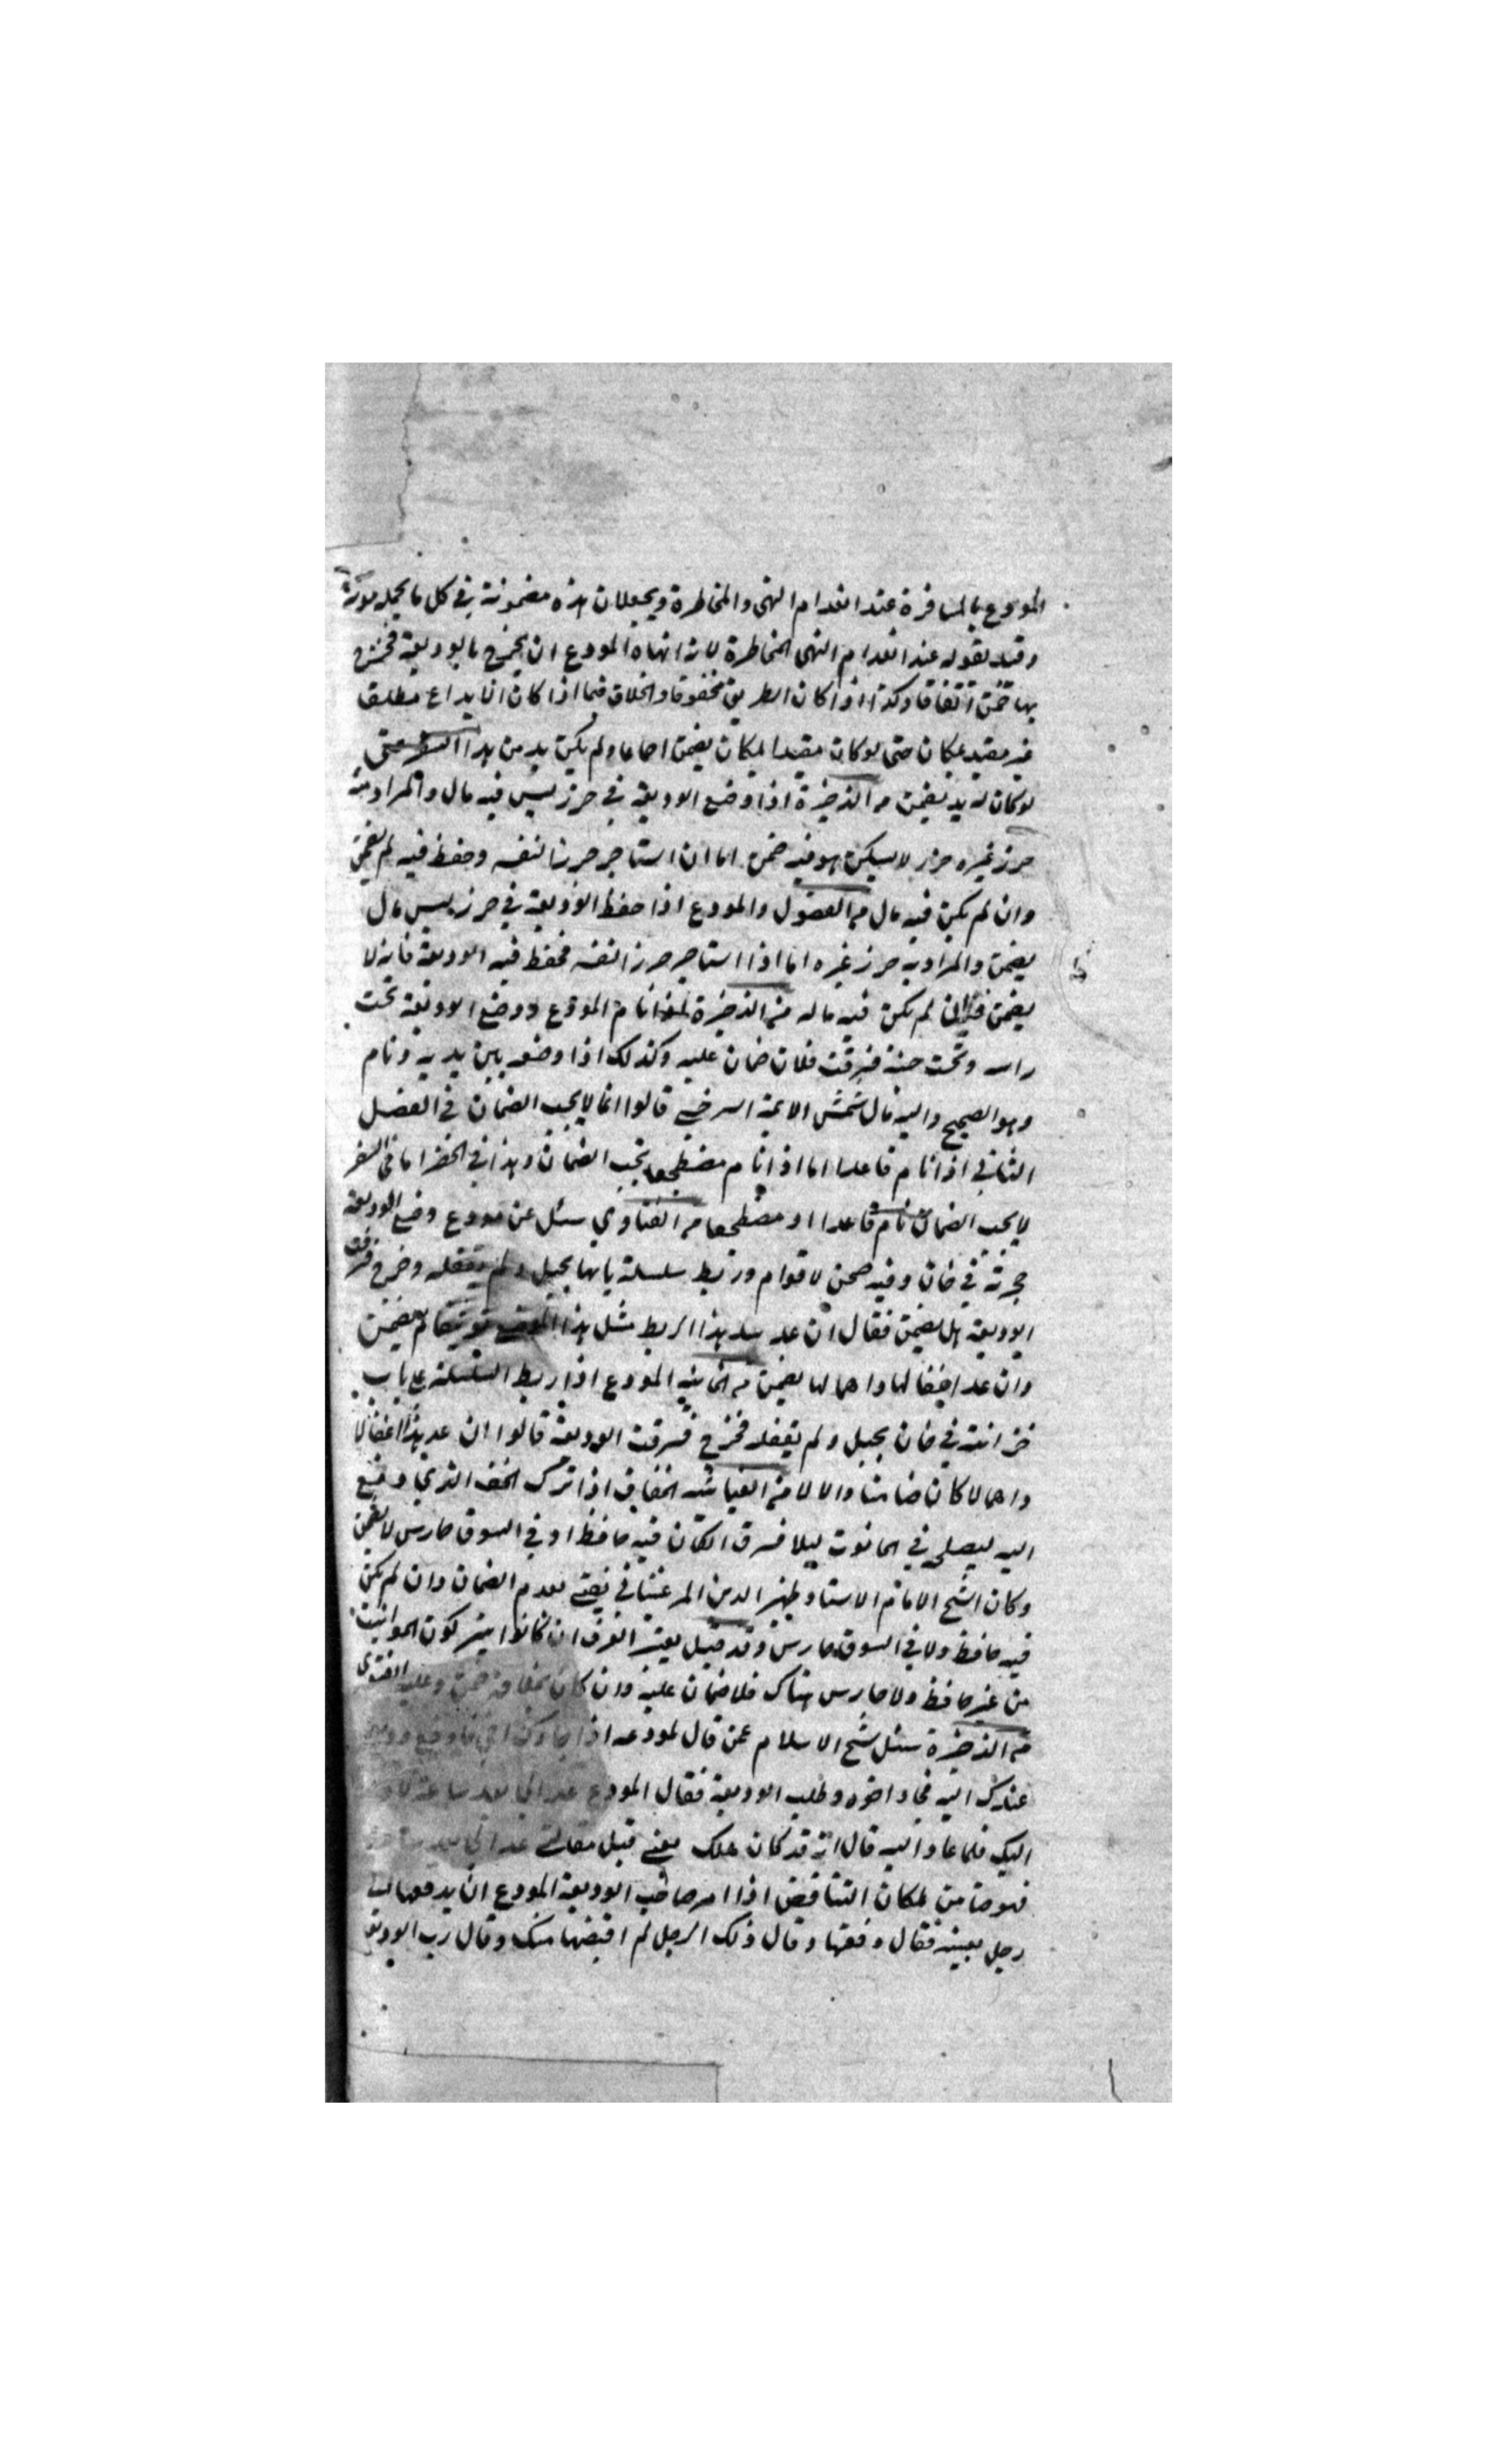 المودع بالمسافرة عند انعدام النهى والمخاطرة ويجعلان هذه مضمونة في كل ما يحمله مؤنة
وقيد بقوله عند انعدام النهى المخاطرة لانه انهاه المودع ان يخرج بالوديعة فخرج
بها ضمن اتفاقا وكذا اذا كان الطريق مخوفا والخلاف فيما اذا كان الايداع مطلقا
غير مقيد بمكان حتى لو كان مقيدا بمكان يضمن اجماعا ولم يكن بد من هذا السفر حتى
لو كان له بد يضمن من الذخيرة اذا وضع الوديعة في حرز ليس فيه مال والمراد منه
حرز غيره حرز لا يسكن هو فيه ضمن اما ان استاجر حرزا لنفسه وحفظ فيه لم يضمن
وان لم يكن فيه مال من الفصول والمودع اذا حفظ الوديعة في حرز ليس مال
يضمن والمراد به حرز غيره اما اذا استاجر حرزا لنفسه فحفظ فيه الوديعة فانه لا
يضمن وان لم يكن فيه ماله من الذخيرة نام المودع ووضع الوديعة تحت
راسه وتحت جنبه فسرقت فلان ضمان عليه وكذلك اذا وضعه بين يديه ونام
وهو الصحيح واليه مال شمش الايمة السرخسي قالوا انما لا يجب الضمان في الفصل
الثاني اذا نام قاعدا اما اذا نام مضطجعا يجب الضمان وهذا في الحضر اما في السفر
لا يجب الضمان نام قاعدا او مضطجعا من الفتاوي سئل عن مودع وضع الوديعة
حجرته في خان وفيه صحن لاقوام وربط سلسلة بابها بحبل ولم يقفله وخرج فسرقت
الوديعة هل يضمن فقال ان عد مثل هذا الربط مثل هذا الموضع توثقا لم يضمن
وان عد اغفالها واهمالها يضمن من الخانية المودع اذا ربط السلسلة على باب
خزانته في خان بحبل ولم يقفله فخرج فسرقت الوديعة قالوا ان عد هذا اغفالا
واهمالا كان ضامنا والا لا من الغياشه الخفاف اذا ترك الخف الذي دفع
اليه ليصلح في الحانوت ليلا فسرق الكان فيه حافظ او في السوق حارس لا يضمن
وكان الشيخ الامام الاستاد ظهير الدين المرغيناني يفتى بعدم الضمان وان لم يكن
فيه حافظ ولا في السوق حارس وقد قيل يعتبر العرف ان كانوا يتركون الحوانيت
من غير حافظ ولا حارس هناك فلا ضمان عليه وان كان بخلافه ضمن وعليه الفتوى
من الذخيرة سئل شيخ الاسلام عمن قال لمودعه اذا جاءك اخي فادفع وديعة
عندك اليه فجاء اخوه وطلب الوديعة فقال المودع عد الي بعد ساعة لادفع
اليك فلما عاد اليه قال انه قد كان هلك يعني قبل مقالتي عد الي بعد ساعة
فهو ضامن لمكان التناقض اذا امر صاحب الوديعة المودع ان يدفعها الى
رجل بعينه فقال دفعتها وقال ذلك الرجل لم اقبضها منك وقال رب الوديعة